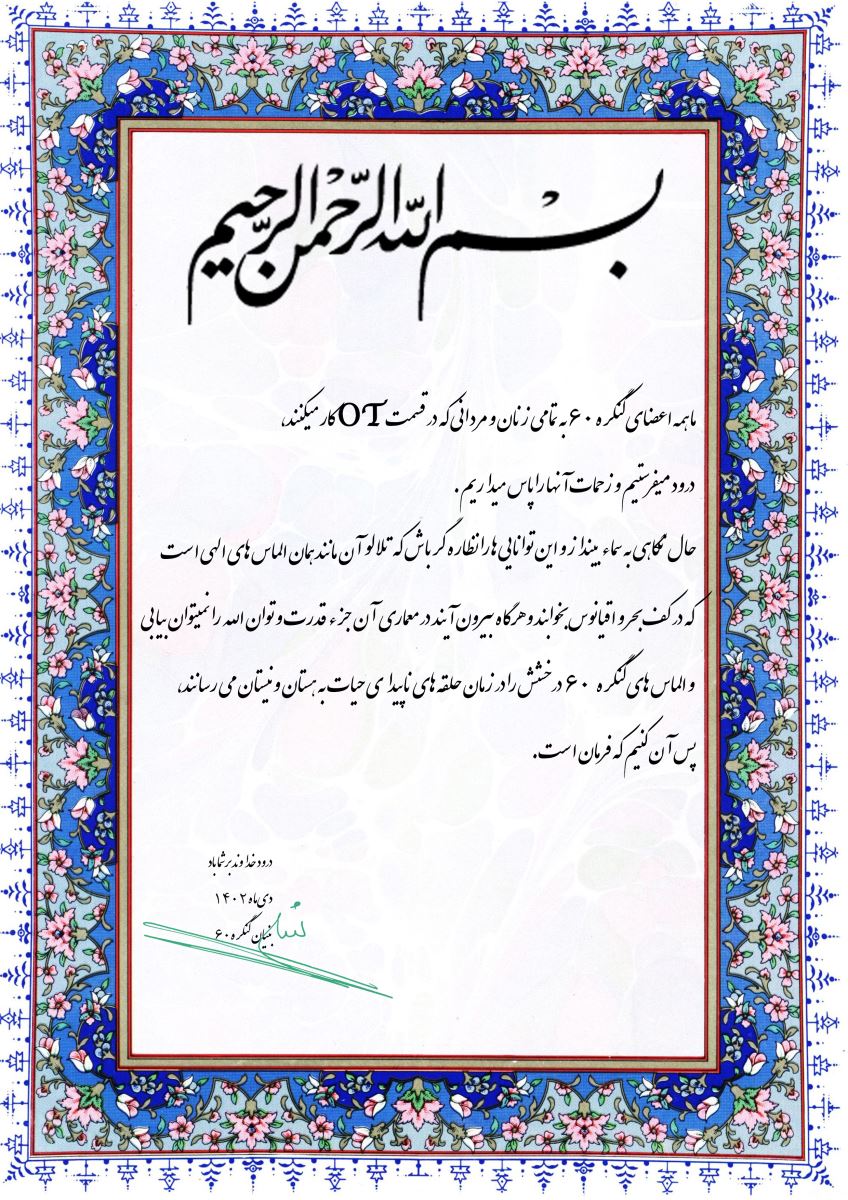 بسم الله الرحمن الرحیم
ما همه اعضای کنگره ۶۰ به تمامی زنان و مردانی که در قسمت OT کار میکنند،
درود میفرستیم و زحمات آنها را پاس میداریم.
حال نگاهی به سماء بینداز و این توانایی ها را نظاره گر باش که تلالو آن مانند همان الماس های الهی است
که در کف بحر و اقیانوس بخوابند و هرگاه بیرون آیند در معماری آن جزء قدرت و توان الله را نمیتوان بیابی
و الماس های کنگره ۶۰ درخشش را در زمان حلقه های ناپیدای حیات به هستان و نیستان می رسانند،
پس آن کنیم که فرمان است.
درود خداوند بر شما باد
دی ماه ۱۴۰۲
بنیان کنگره ۶۰